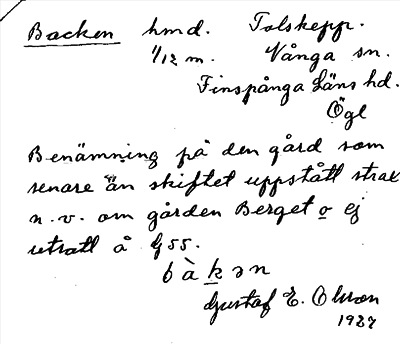 Backen hmd. Tolskepp.
1/12 m. Vånga sn.
Finspånga Läns hd.
Ögl
Benämning på den gård som
senare än skiftet uppstått strax
n.v. om gården Berget o ej
utsatt å G55.
b à k ə n
Gustaf E. Olsson
1927